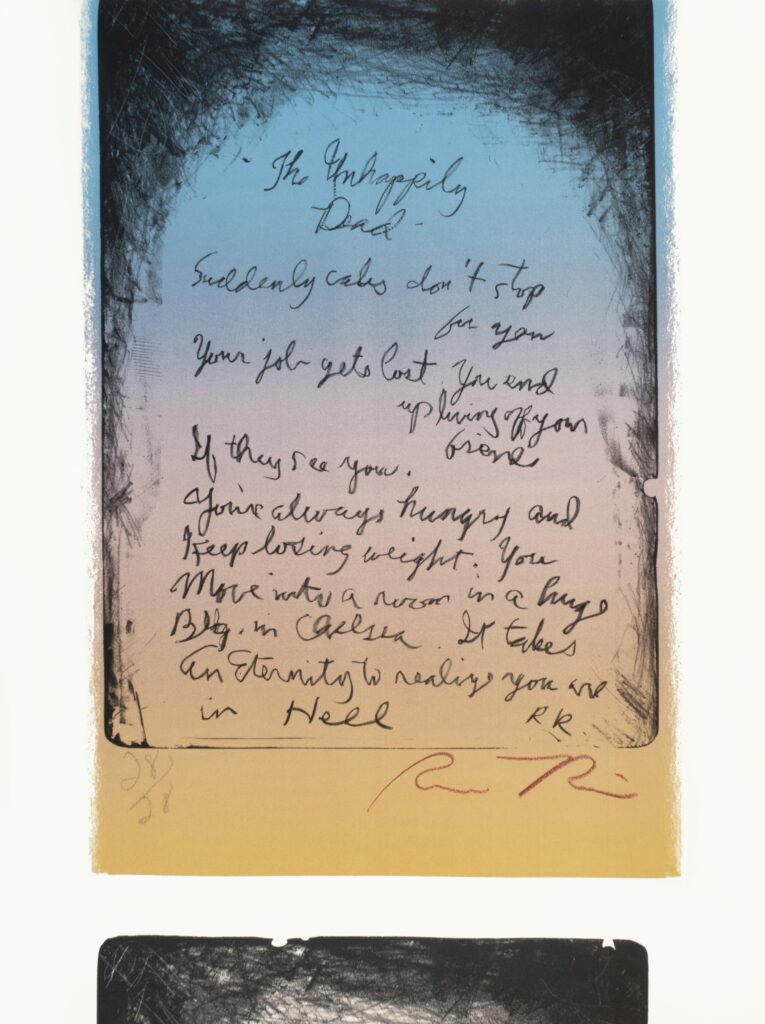 The Unhappily
Dead -
Suddenly cabs don't stop
for you
Your job gets lost. You end
up living off your
friends
If they see you.
You're always hungry and
Keep losing weight. You
Move into a room in a huge
Bldg. in Chelsea. It takes
An Eternity to realize you are
in Hell
RR
28/28